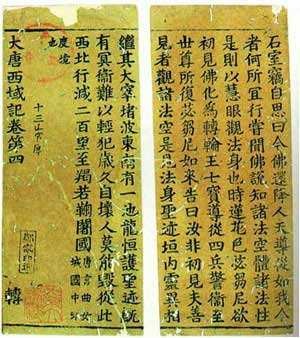 石室竊自思曰今佛還降人天導從如我今
者何所宜行嘗聞佛說知諸法空體諸法性
是則以慧眼觀法身也時蓮花色苾芻尼欲
初見佛化為轉輪王七寶導從四兵警衛至
世尊所復苾芻尼如來告曰汝非初見夫善
見者觀諸法空是見法身聖迹垣內靈異相
繼其大窣堵波東南有一池龍恒護聖迹既
有冥衛難以輕犯歲久自壞人莫能毀從此
西北行減二百里至羯若鞠闍國唐言曲女城國中印
度境也
大唐西域記卷第四
十三
轉